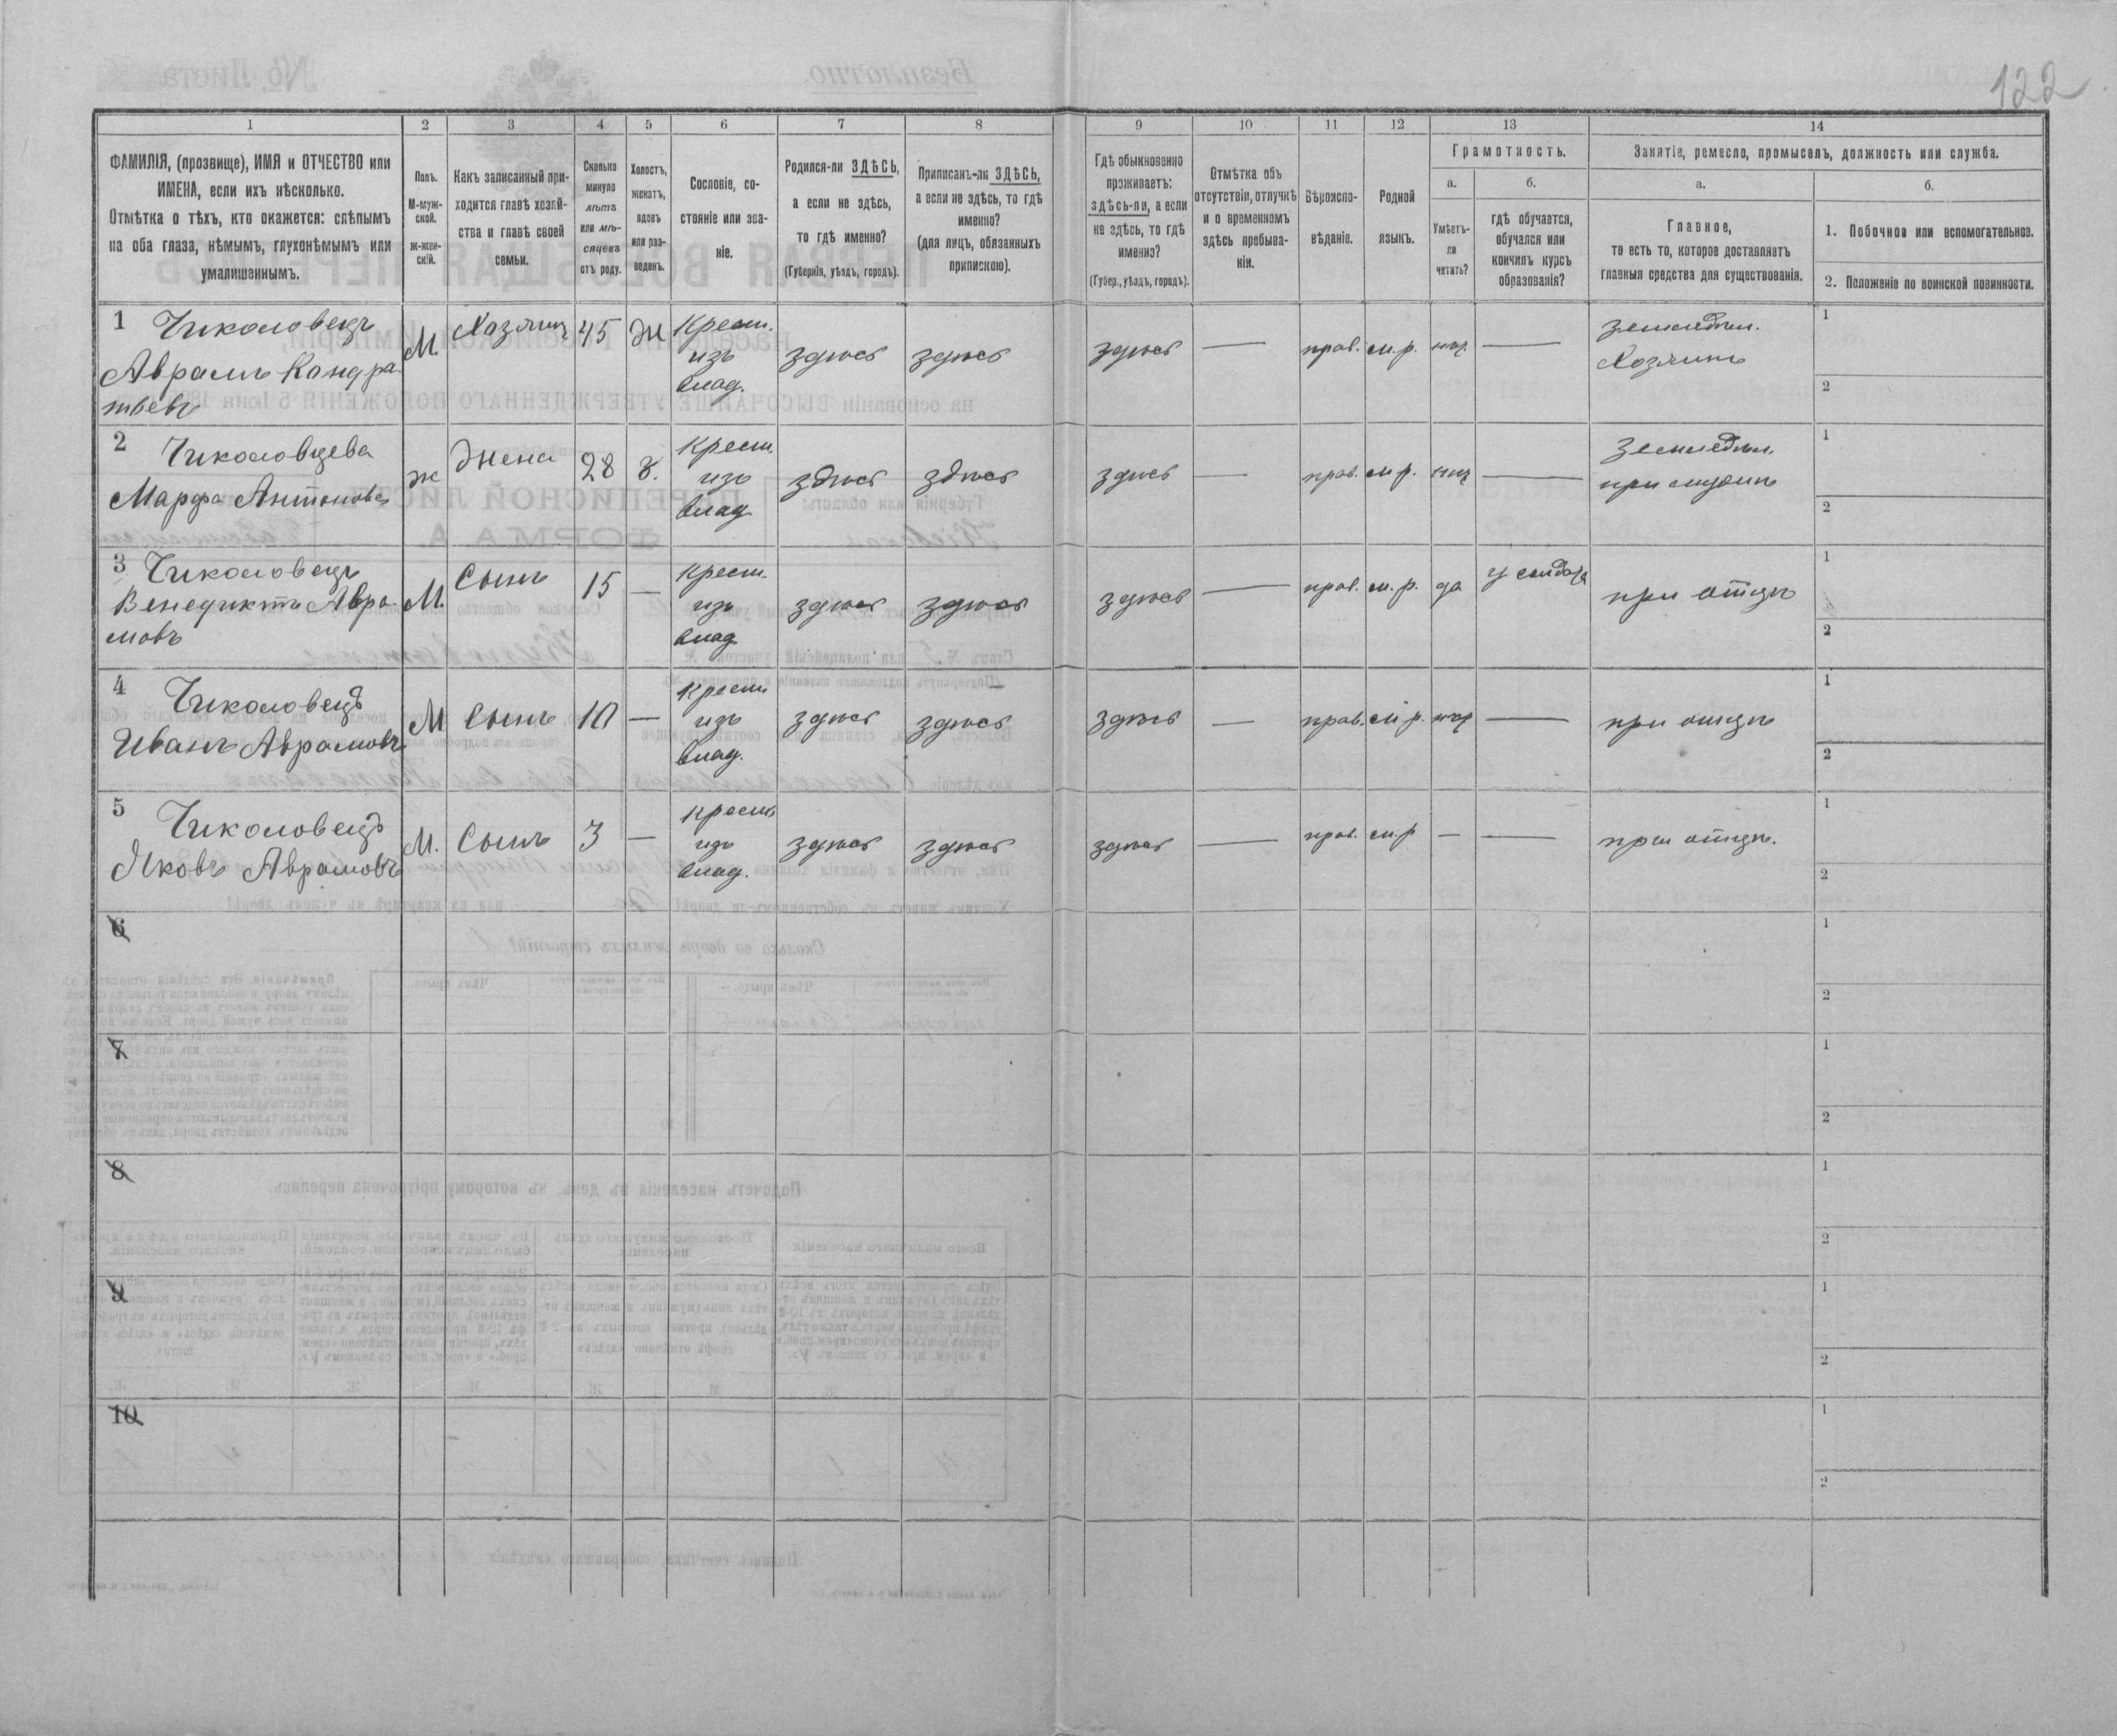 122
1 2 3 4 5 6 7 8 9 10 11 12 13 14
ФАМИЛІЯ, (прозвище), ИМЯ и ОТЧЕСТВО или
ИМЕНА, если ихъ нѣсколько.
Отмѣтка о тѣхъ, кто окажется: слѣпымъ
на оба глаза, нѣмымъ, глухонѣмымъ или
умалишеннымъ.
Полъ.
М-муж-
ской.
ж-жен-
скій.
Какъ записанный при-
ходится главѣ хозяй-
ства и главѣ своей
семьи.
Сколько
минуло
лѣтъ
или мѣ-
сяцевъ
отъ роду.
Холостъ,
женатъ,
вдовъ
или раз-
веденъ.
Сословіе, со-
стояніе или зва-
ніе.
Родился-ли ЗДѢСЬ,
а если не здѣсь,
то гдѣ именно?
(Губернія, уѣздъ, городъ).
Приписанъ-ли ЗДѢСЬ,
а если не здѣсь, то гдѣ
именно?
(для лицъ, обязанныхъ
припискою).
Гдѣ обыкновенно
проживаетъ:
здѣсь-ли, а если
не здѣсь, то гдѣ
именно?
(Губер., уѣздъ, городъ).
Отмѣтка объ
отсутствіи, отлучкѣ
и о временномъ
здѣсь пребыва-
ніи.
Вѣроиспо-
вѣданіе.
Родной
языкъ.
Грамотность.
а.
Умѣетъ-
ли
читать?
б.
гдѣ обучается,
обучался или
кончилъ курсъ
образованія?
Занятіе, ремесло, промыселъ, должность или служба.
а.
Главное,
то есть то, которое доставляетъ
главныя средства для существованія.
б.
1. Побочное или вспомогательное.
2. Положеніе по воинской повинности.
1 Чиколовецъ
Аврамъ Кондра-
тьевъ
М. Хозяинъ 45 Ж
Крест.
изъ
влад.
здѣсь здѣсь здѣсь — прав. м.р. —
земледѣл.
Хозяинъ
1
2
2 Чиколовцева
Марфа Антонова
ж Жена 28 з.
Крест.
изъ
влад.
здѣсь здѣсь здѣсь — прав. м.р. —
земледѣл.
при мужѣ
1
2
3 Чиколовецъ
Венедиктъ Авра-
мовъ
М. Сынъ 15 —
Крест.
изъ
влад.
здѣсь здѣсь здѣсь — прав. м.р. да у солдата
при отцѣ
1
2
4 Чиколовецъ
Иванъ Аврамовъ
М Сынъ 10 —
Крест.
изъ
влад.
здѣсь здѣсь здѣсь — прав. м.р. —
при отцѣ
1
2
5 Чиколовецъ
Яковъ Аврамовъ
М. Сынъ 3 —
Крест.
изъ
влад.
здѣсь здѣсь здѣсь — прав. м.р — —
при отцѣ.
1
2
6
1
2
7
1
2
8
1
2
9
1
2
10
1
2